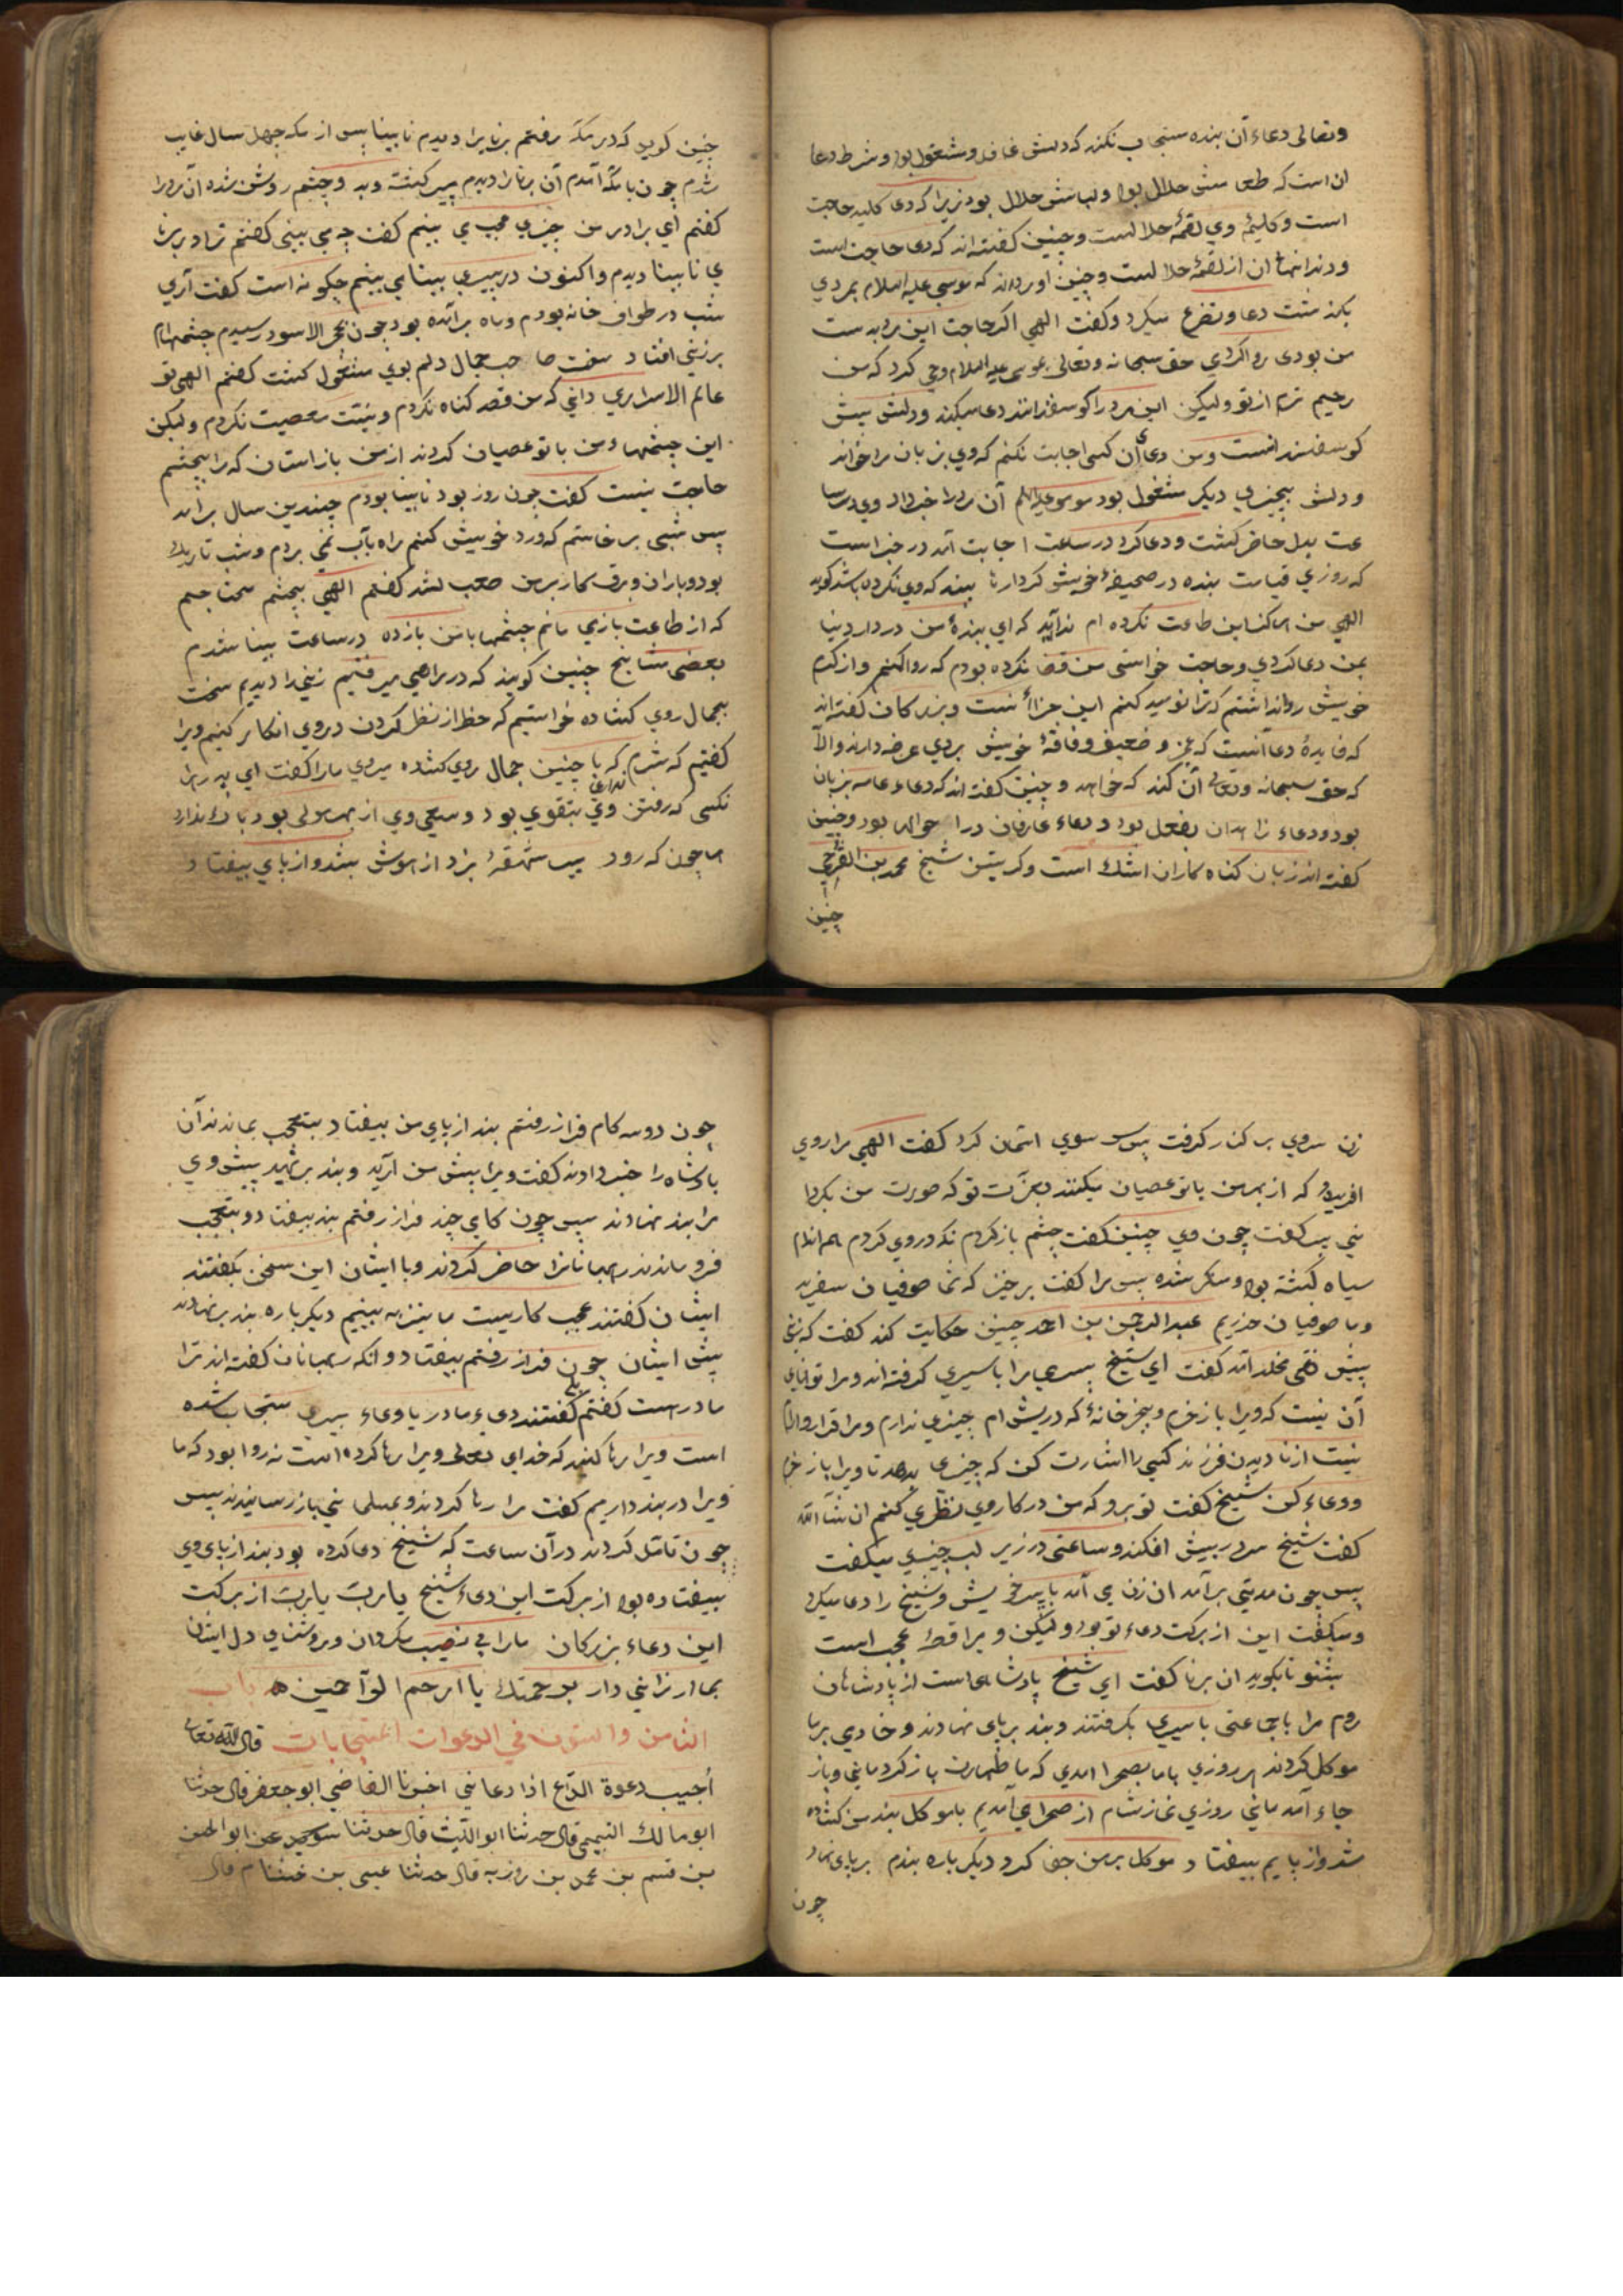 وتعالی دعاء آن بنده مستجاب نکند که دلش غافل ومشغول بود وشرط دعا
ان است که طعامش حلال بود ولباسش حلال بود زیرا که دعا کلید حاجت
است وکلید وی لقمهٔ حلالست وچنین کفته اند که دعا حاجت است
ودندانهاء ان از لقمهٔ حلالست وچنین اورده اند که موسی علیه السلام بمردی
بکذشت دعا وتضرع میکرد وکفت الهی اکر حاجت این مرد بدست
من بودی رواکردی حق سبحانه وتعالی بموسی علیه السلام وحی کرد که من
رحیم ترم ازتو ولیکن این مرد را کوسفندانند دعا میکند ودلش پیش
کوسفندانست ومن دعای آن کس اجابت نکنم که وی بزبان مرا خواند
ودلش بچیزی دیکر مشغول بود موسی علیه السلام آن مرد را خبر داد وی درسا
عت بدل حاضر کشت ودعا کرد درساعت اجابت آمد در خبر است
که روزی قیامت بنده در صحیفهٔ خویش کردارها بیند که وی نکرده باشد کوید
الهی من هرکز این طاعت نکرده ام ندا آید که ای بندهٔ من در دار دنیا
بمن دعا کردی وحاجت خواستی من قضا نکرده بودم که رواکنم واز کرم
خویش روا نداشتم که ترا نومید کنم این جزاء آنست وبزرکان کفته اند
که فایدهٔ دعا آنست که عجز وضعیفی وفاقهٔ خویش بروی عرضه دارند والا
که حق سبحانه وتعالی آن کند که خواهد وچنین کفته اند که دعاء عامه بزبان
بود ودعاء زاهدان بفعل بود ودعاء عارفان در احوال بود وچنین
کفته اند زبان کناه کاران اشک است وکریستن شیخ محمد بن الفرخی
چنین
چنین کوید که در مکه رفتم برنایرا دیدم نابینا پس از مکه چهل سال غایب
شدم چون بامکه آمدم آن برنا را دیدم پیر کشته وبد وچشم روشن شده آن مرد را
کفتم ای برادر من چیزی عجب می بینم کفت چه می بینی کفتم ترا در برنا
یی نابینا دیدم واکنون در پیری بینا می بینم چکونه است کفت آری
شب در طواف خانه بودم وماه برآمده بود چون بحجر الاسود رسیدم چشمهام
برزنی افتاد سخت صاحب جمال دلم بوی مشغول کشت کفتم الهی تو
عالم الاسراری دانی که من قصد کناه نکردم ونیت معصیت نکردم ولیکن
این چشمهاء من با تو عصیان کردند از من بازستان که مرا بچشم
حاجت نیست کفت چون روز بود نابینا بودم چندین سال برآمد
پس شبی برخاستم که ورد خویش کنم راه بآب نمی بردم وشب تاریک
بود وباران وبرق کار برمن صعب شد کفتم الهی بچشم محتاجم
که از طاعت باز می مانم چشمها بامن بازده درساعت بینا شدم
بعضی مشایخ چنین کویند که در براهی میرفتیم زنی را دیدیم سخت
بجمال روی کشاده خواستیم که حظر از نظر کردن دروی انکار کنیم ویرا
کفتیم که شرم نداری که با چنین جمال روی کشاده میروی مارا کفت ای پدر هر
نکسی که رفتن وی بتقوی بود وسعی وی از بهر مولی بود باک ندارد
هر چون که رود پس شهقهٔ بزد از هوش بشد واز پای بیفتاد
زن سروی برکنار کرفت پس سوی اسمان کرد کفت الهی مرا روی
افریدی که از بهر من باتو عصیان میکنند بعزّت تو که صورت من بکردا
نی پس کفت چون وی چنین کفت چشم باز کردم نکه در وی کردم هم اندام
سیاه کشته بود ومنکر شده پس مرا کفت برخیز که شما صوفیان سفرید
وما صوفیان حذریم عبدالرحمن بن احمد چنین حکایت کند کفت که زنی
پیش تقی مخلد آمد کفت ای شیخ پسری مرا باسیری کرفته اند ومرا توانای
آن نیست که ویرا بازخرم وبجز خانهٔ که درپیش ام چیزی ندارم ومرا قرار وآرام
نیست از نادیدن فرزند کسی را اشارت کن که چیزی بدهد تا ویرا بازخرم
ودعاء کن شیخ کفت تو برو که من در کار وی نظری کنم ان شآ الله
کفت شیخ سر در پیش افکند وساعتی در زیر لب چیزی میکفت
پس چون مدتی برآمد ان زن می آمد با پسر خویش وشیخ را دعا میکرد
ومیکفت این از برکت دعاء تو بود ولیکن ویرا قصهٔ عجب است
بشنو تا بکوید ان برنا کفت ای شیخ پادشاهی است از پادشاهان
روم مرا با جماعتی باسیری بکرفتند وبند برپای نهادند وخادمی برما
موکل کردند هر روزی باما بصحرا امدی که ما طهارت باز کردمانی وباز
جاء آمد مانی روزی نماز شام از صحرا می آمدیم با موکل بند من کشاده
شد واز پایم بیفتاد موکل برمن جفا کرد ودیکر باره بندم برپای نهاد
چون
چون دوسه کام فراز رفتم بند از پای من بیفتاد بتعجب بماندند آن
پادشاه را خبر دادند کفت ویرا پیش من آرید وبند برنهید پیش وی
مرا بند نهادند پس چون کامی چند فراز رفتم بند بیفتاد وبتعجب
فروماندند رهبانانرا حاضر کردند وبا ایشان این سخن بکفتند
ایشان کفتند عجب کاریست ما نیز به بینیم دیکر باره بند برنهادند
پیش ایشان چون فراز رفتم بیفتاد وانکه رهبانان کفته اند ترا
مادر هست کفتم بلی کفتند دعاء مادر یا دعاء پیری مستجاب شده
است ویرا رها کنید که خدای تعالی ویرا رها کرده است نه روا بود که ما
ویرا در بند داریم کفت مرا رها کردند وبمسلمانی باز رسانیدند پس
چون تامل کردند در آن ساعت که شیخ دعا کرده بود بند از پای وی
بیفتاده بود از برکت این دعاء شیخ یا ربّ یا ربّ از برکت
این دعاء بزرکان مارا بی نصیب مکردان وروشنای دل ایشان
بما ارزانی دار برحمتک یا ارحم الرّآحمین ه باب
الثامن والستون فی الدعوات المستجابات قال الله تعالی
أجیب دعوة الدّاع اذا دعانی اخبرنا القاضی ابو جعفر قال حدثنا
ابو مالک التمیمی قال حدثنا ابو اللّیث قال حدثنا سوید عن ابو الحسن
بن قسم بن محمد بن روزبه قال حدثنا عیسی بن خشنام قال